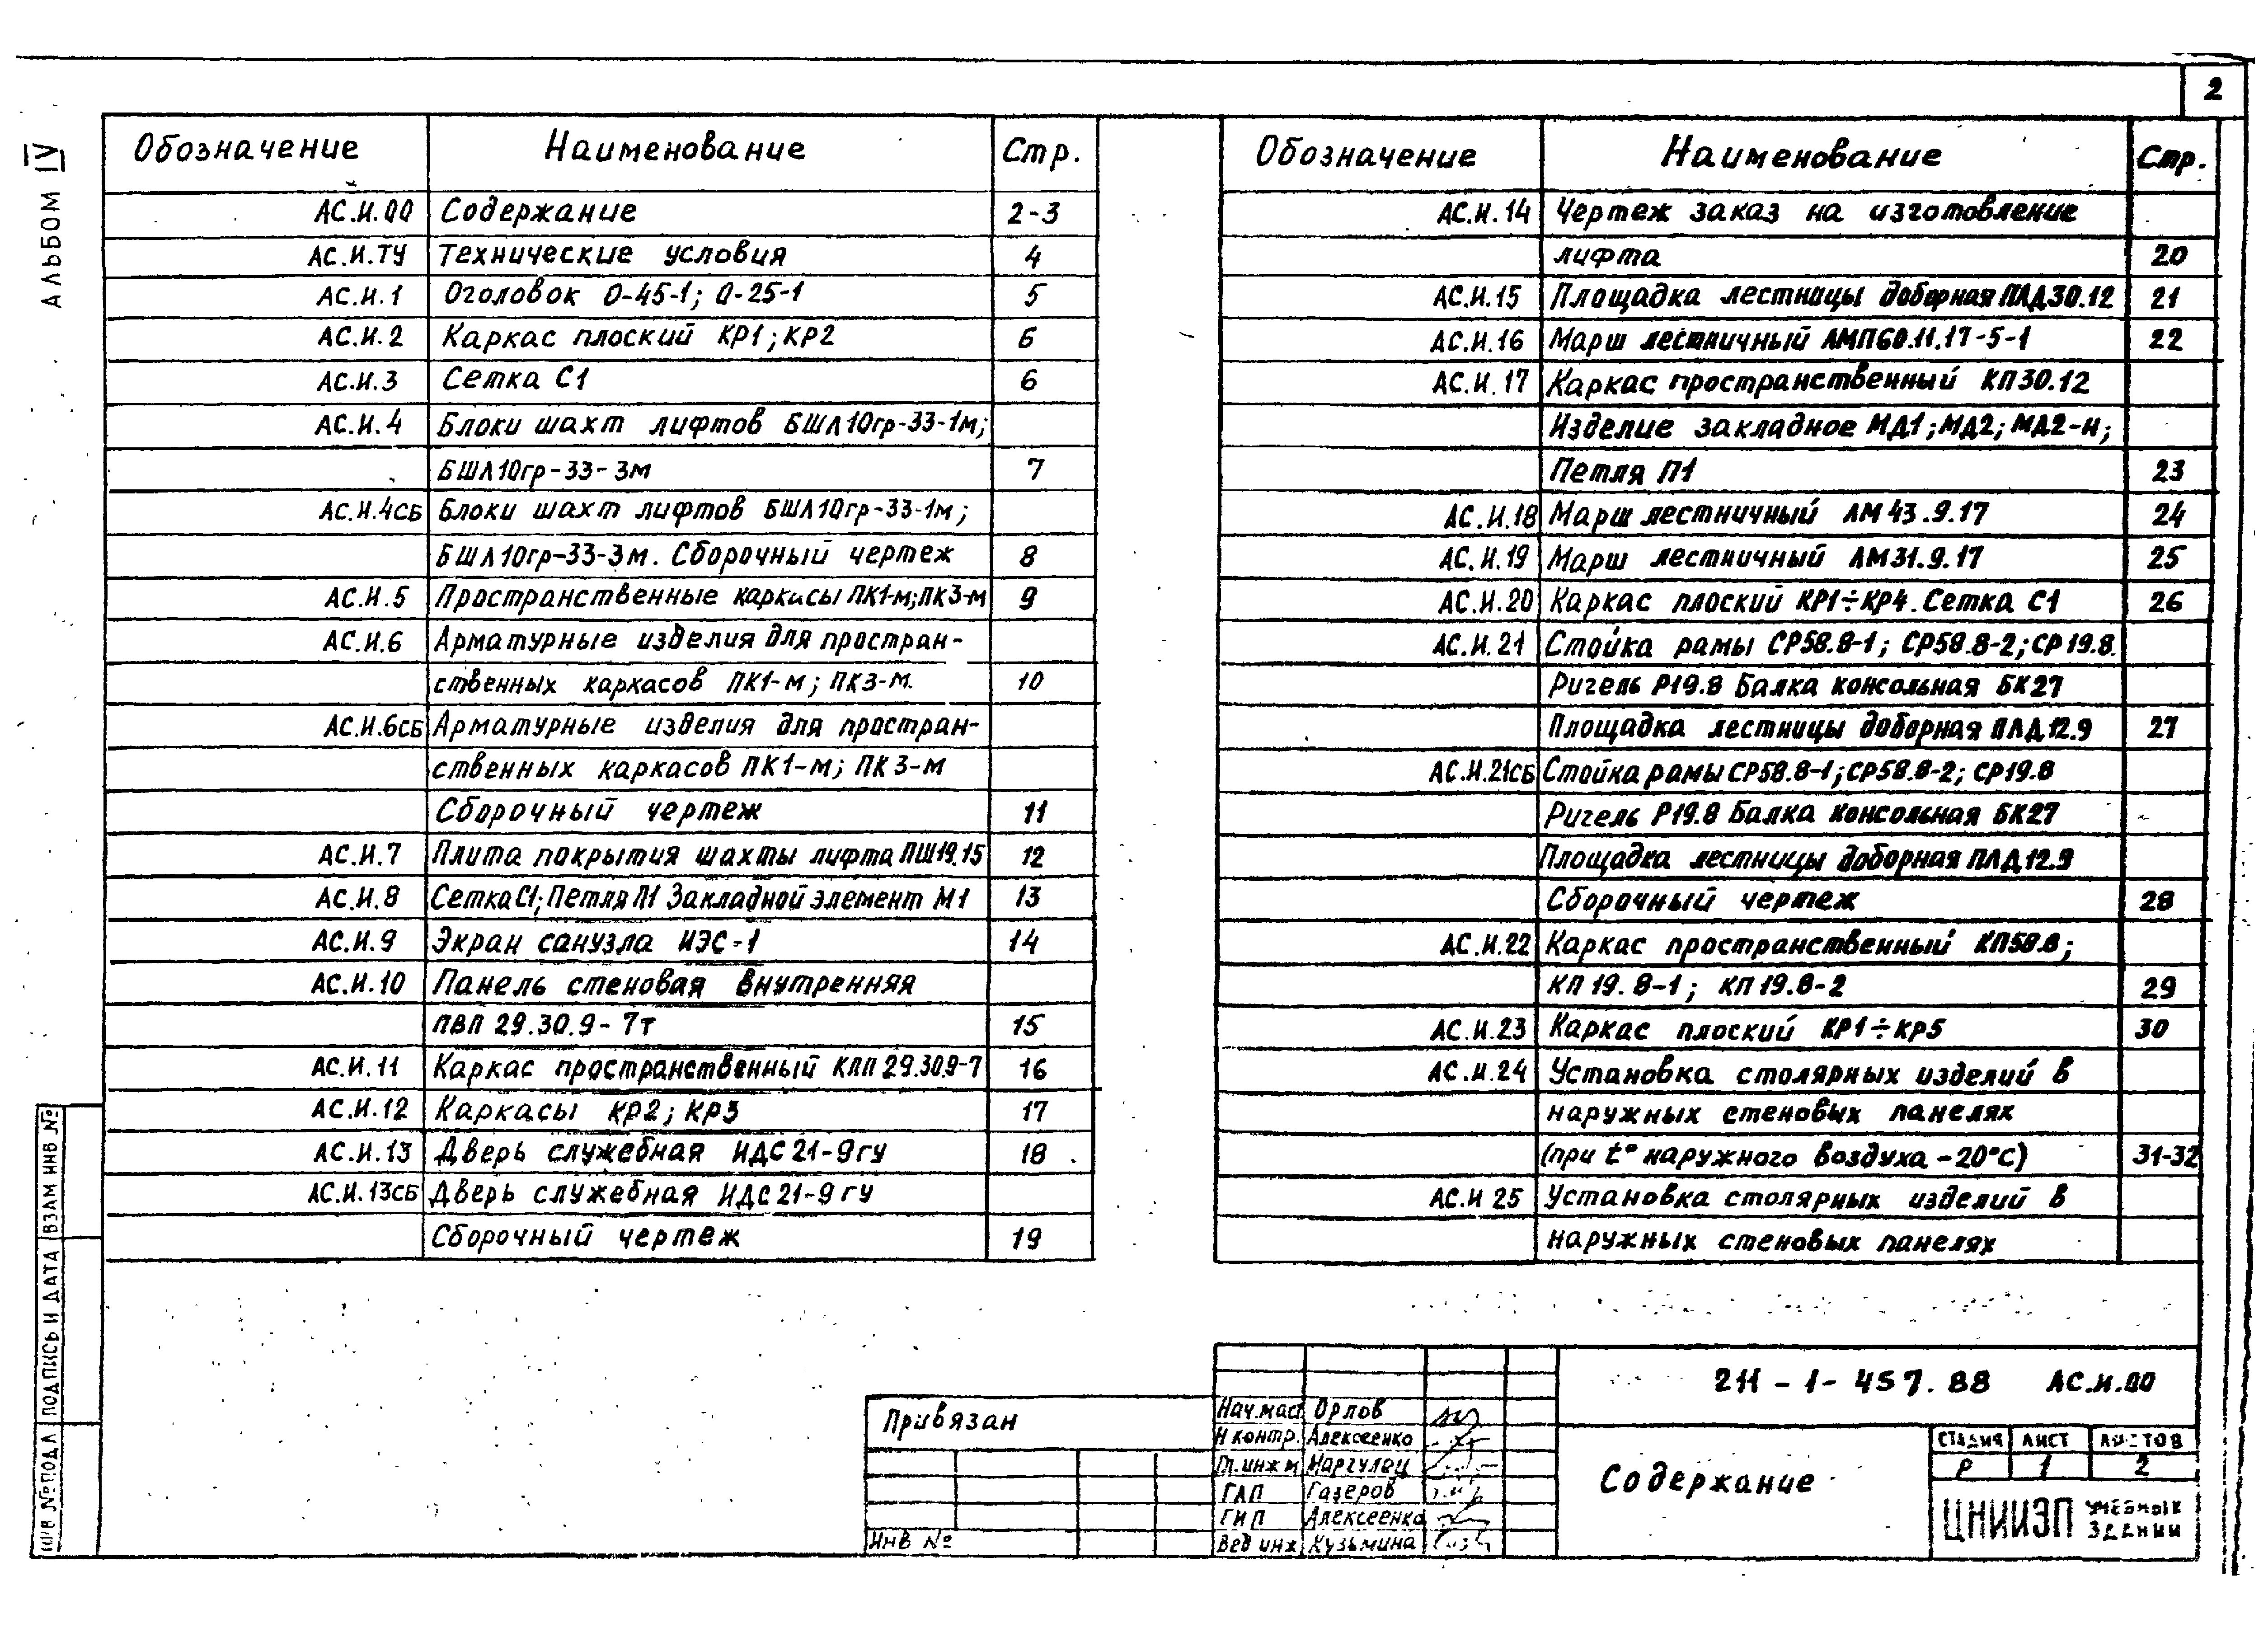 2
АЛЬБОМ IV
Обозначение Наименование Стр.
АС.И.00 Содержание 2-3
АС.И.ТУ Технические условия 4
АС.И.1 Оголовок О-45-1; О-25-1 5
АС.И.2 Каркас плоский КР1; КР2 6
АС.И.3 Сетка С1 6
АС.И.4 Блоки шахт лифтов БШЛ10гр-33-1м;
БШЛ10гр-33-3м 7
АС.И.4СБ Блоки шахт лифтов БШЛ10гр-33-1м;
БШЛ10гр-33-3м. Сборочный чертеж 8
АС.И.5 Пространственные каркасы ПК1-м; ПК3-м 9
АС.И.6 Арматурные изделия для простран-
ственных каркасов ПК1-м; ПК3-м. 10
АС.И.6СБ Арматурные изделия для простран-
ственных каркасов ПК1-м; ПК3-м
Сборочный чертеж 11
АС.И.7 Плита покрытия шахты лифта ПШ19.15 12
АС.И.8 Сетка С1; Петля П1 Закладной элемент М1 13
АС.И.9 Экран санузла ИЭС-1 14
АС.И.10 Панель стеновая внутренняя
ПВП 29.30.9-7т 15
АС.И.11 Каркас пространственный КПП 29.30.9-7 16
АС.И.12 Каркасы КР2; КР3 17
АС.И.13 Дверь служебная ИДС 21-9гу 18
АС.И.13СБ Дверь служебная ИДС 21-9гу
Сборочный чертеж 19
Обозначение Наименование Стр.
АС.И.14 Чертеж заказ на изготовление
лифта 20
АС.И.15 Площадка лестницы доборная ПЛД30.12 21
АС.И.16 Марш лестничный ЛМП60.11.17-5-1 22
АС.И.17 Каркас пространственный КП30.12
Изделие закладное МД1; МД2; МД2-н;
Петля П1 23
АС.И.18 Марш лестничный ЛМ 43.9.17 24
АС.И.19 Марш лестничный ЛМ31.9.17 25
АС.И.20 Каркас плоский КР1÷КР4. Сетка С1 26
АС.И.21 Стойка рамы СР58.8-1; СР58.8-2; СР19.8.
Ригель Р19.8 Балка консольная БК27
Площадка лестницы доборная ПЛД12.9 27
АС.И.21СБ Стойка рамы СР58.8-1; СР58.8-2; СР19.8
Ригель Р19.8 Балка консольная БК27
Площадка лестницы доборная ПЛД12.9
Сборочный чертеж 28
АС.И.22 Каркас пространственный КП58.8;
КП19.8-1; КП19.8-2 29
АС.И.23 Каркас плоский КР1÷КР5 30
АС.И.24 Установка столярных изделий в
наружных стеновых панелях
(при t° наружного воздуха -20°С) 31-32
АС.И 25 Установка столярных изделий в
наружных стеновых панелях
ИНВ № ПОДЛ ПОДПИСЬ И ДАТА ВЗАМ ИНВ №
Привязан
Инв №
Нач.маст Орлов
Н контр. Алексеенко
Гл.инж м Маргулец
ГАП Газеров
ГИП Алексеенко
Вед инж Кузьмина
211-1-457.88 АС.И.00
Содержание
СТАДИЯ ЛИСТ ЛИСТОВ
Р 1 2
ЦНИИЭП УЧЕБНЫХ
ЗДАНИИ